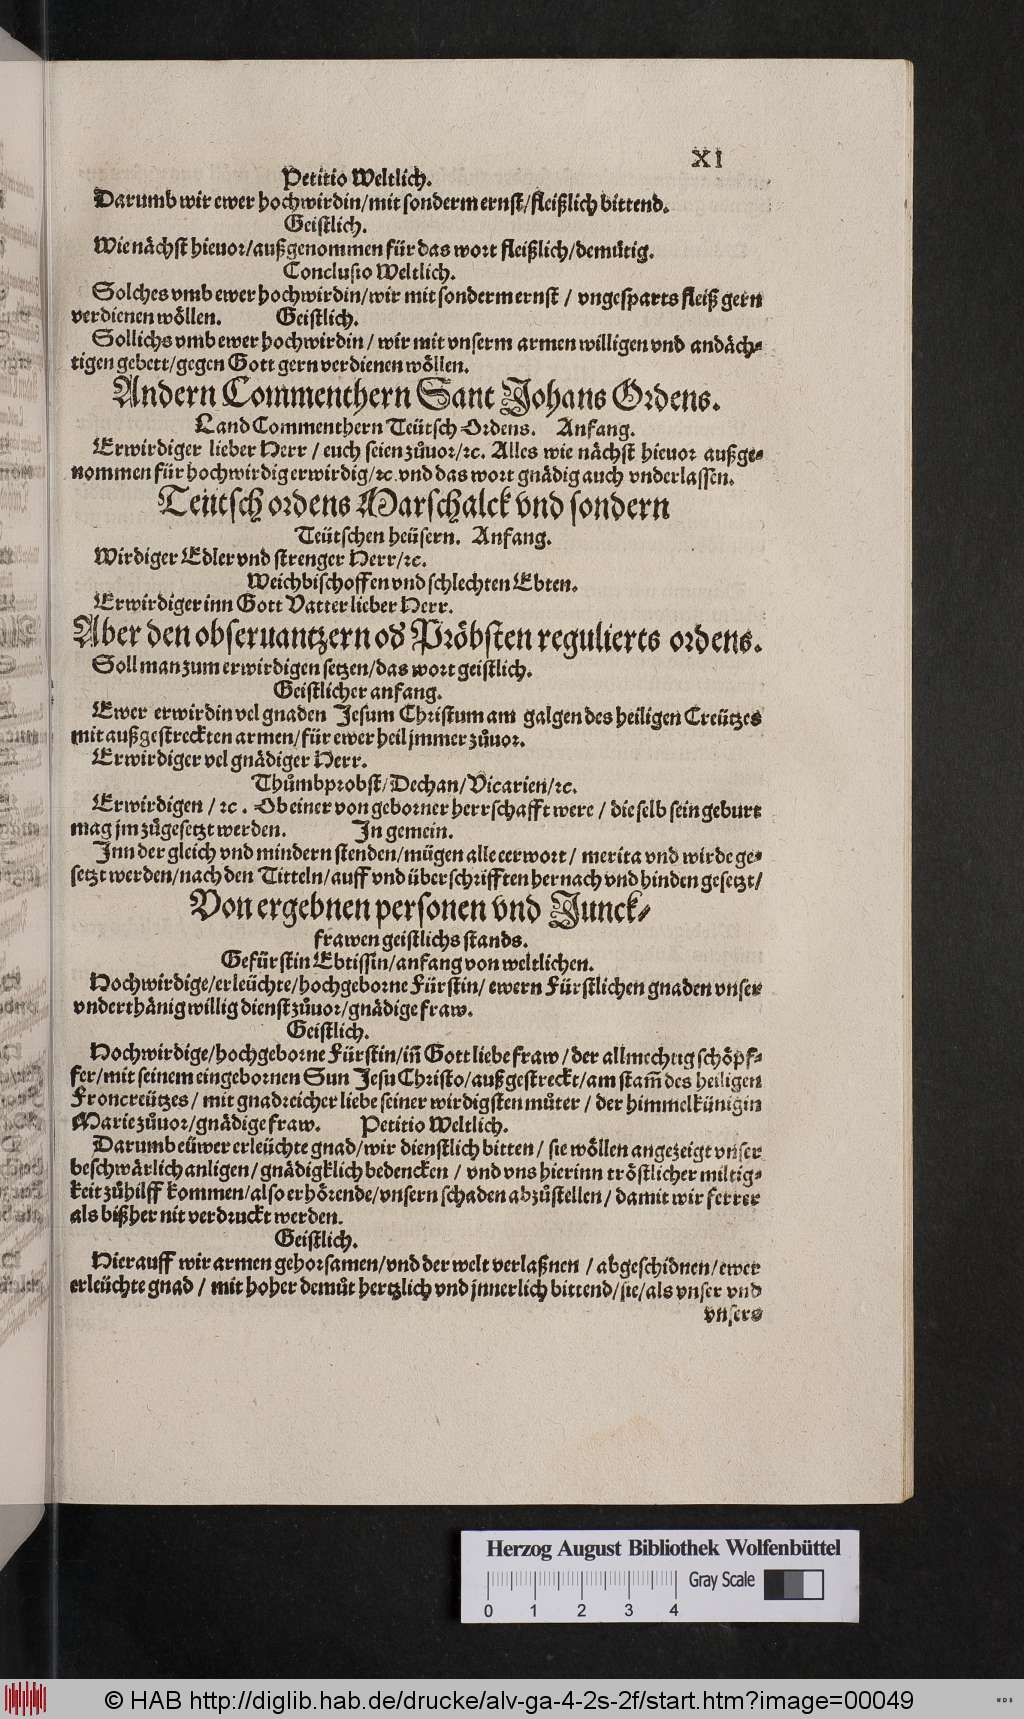 XI
Petitio Weltlich.
Darumb wir ewer hochwirdin/mit sonderm ernst/fleißlich bittend.
Geistlich.
Wie nächst hieuor/außgenommen für das wort fleißlich/demütig.
Conclusio Weltlich.
Solches vmb ewer hochwirdin/wir mit sonderm ernst / vngesparts fleiß gern
verdienen wöllen. Geistlich.
Sollichs vmb ewer hochwirdin / wir mit vnserm armen willigen vnd andäch⸗
tigen gebett/gegen Gott gern verdienen wöllen.
Andern Commenthern Sant Johans Ordens.
Land Commenthern Teütsch Ordens. Anfang.
Erwirdiger lieber Herr / euch seien zůuor/ꝛc. Alles wie nächst hieuor außge⸗
nommen für hochwirdig erwirdig/ꝛc. vnd das wort gnädig auch vnderlassen.
Teütsch ordens Marschalck vnd sondern
Teütschen heüsern. Anfang.
Wirdiger Edler vnd strenger Herr/ꝛc.
Weichbischoffen vnd schlechten Ebten.
Erwirdiger inn Gott Vatter lieber Herr.
Aber den obseruantzern od' Pröbsten regulierts ordens.
Soll man zum erwirdigen setzen/das wort geistlich.
Geistlicher anfang.
Ewer erwirdin vel gnaden Jesum Christum am galgen des heiligen Creützes
mit außgestreckten armen/für ewer heil jmmer zůuor.
Erwirdiger vel gnädiger Herr.
Thůmbprobst/Dechan/Vicarien/ꝛc.
Erwirdigen / ꝛc. Ob einer von geborner herrschafft were / die selb sein geburt
mag jm zůgesetzt werden. In gemein.
Inn der gleich vnd mindern stenden/mügen alle eerwort / merita vnd wirde ge⸗
setzt werden/nach den Titteln/auff vnd überschrifften hernach vnd hinden gesetzt/
Von ergebnen personen vnd Junck⸗
frawen geistlichs stands.
Gefürstin Ebtissin/anfang von weltlichen.
Hochwirdige/erleüchte/hochgeborne Fürstin/ ewern Fürstlichen gnaden vnser
vnderthänig willig dienst zůuor/gnädige fraw.
Geistlich.
Hochwirdige/hochgeborne Fürstin/iñ Gott liebe fraw/der allmechtig schöpf⸗
fer/mit seinem eingebornen Sun Jesu Christo/außgestreckt/am stam̃ des heiligen
Froncreützes / mit gnadreicher liebe seiner wirdigsten můter / der himmelkünigin
Marie zůuor/gnädige fraw. Petitio Weltlich.
Darumb eüwer erleüchte gnad/wir dienstlich bitten / sie wöllen angezeigt vnser
beschwärlich anligen/gnädigklich bedencken / vnd vns hierinn tröstlicher miltig⸗
keit zůhilff kommen/also erhörende/vnsern schaden abzůstellen/ damit wir ferrer
als bißher nit verdruckt werden.
Geistlich.
Hierauff wir armen gehorsamen/vnd der welt verlaßnen / abgeschidnen/ewer
erleüchte gnad / mit hoher demůt hertzlich vnd jnnerlich bittend/sie/als vnser vnd
vnsers
Herzog August Bibliothek Wolfenbüttel
Gray Scale
0 1 2 3 4
© HAB http://diglib.hab.de/drucke/alv-ga-4-2s-2f/start.htm?image=00049